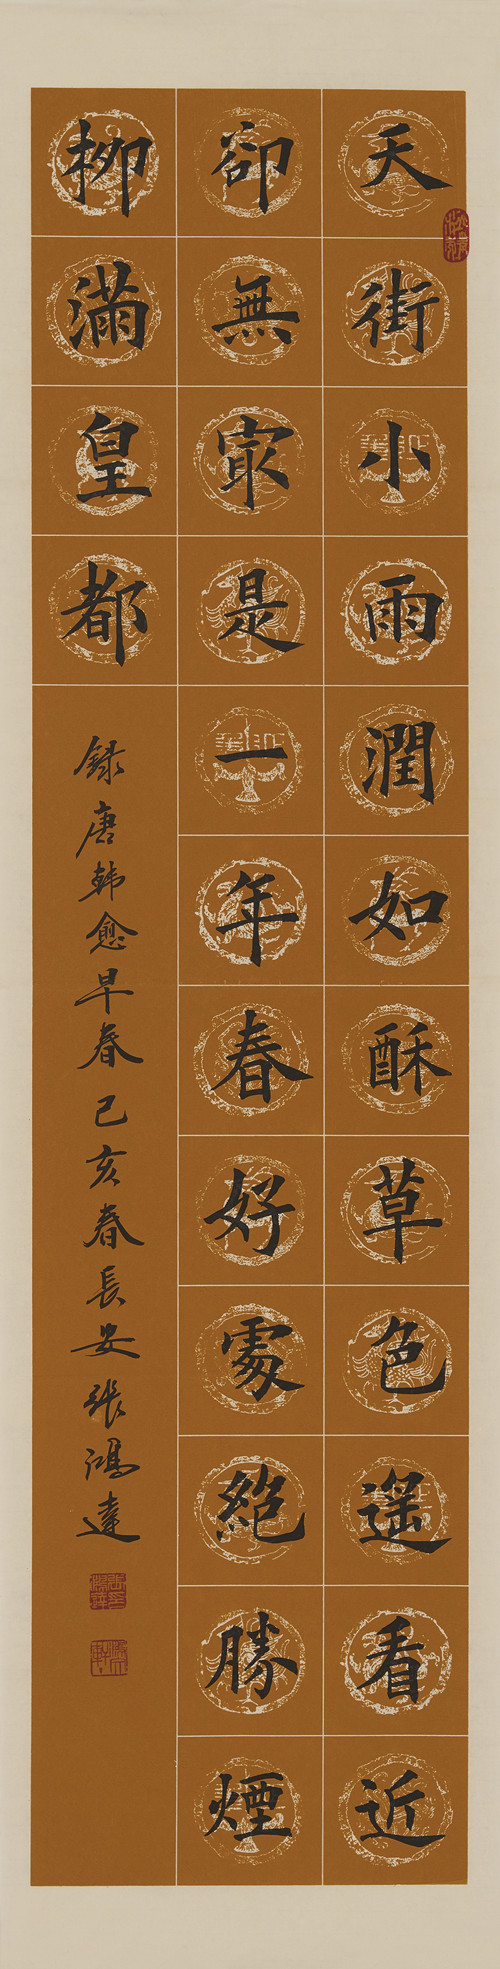 天街小雨潤如酥草色遥看近
卻無㝡是一年春好處絕勝煙
柳滿皇都
録唐韩愈早春己亥春長安張鴻達